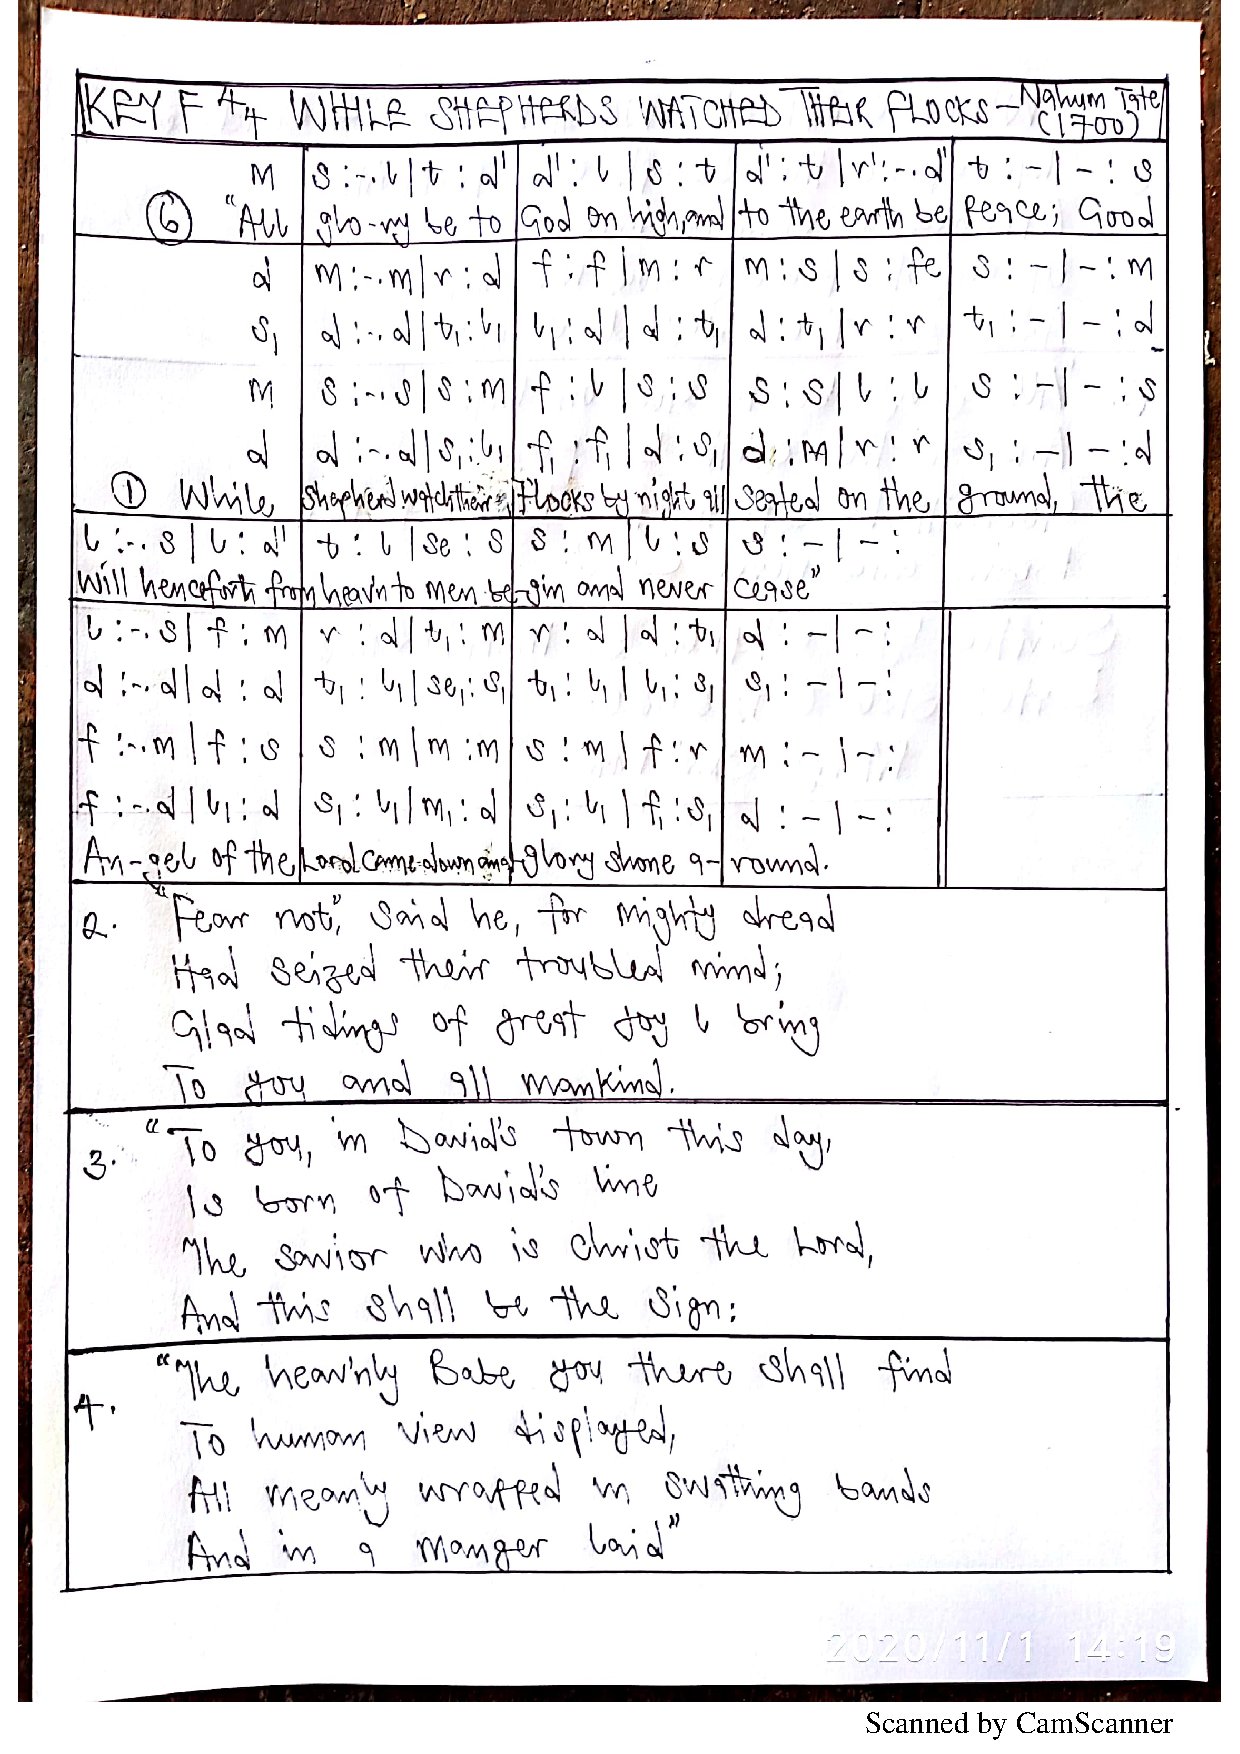 KEY F 4/4 WHILE SHEPHERDS WATCHED THEIR FLOCKS – Nahum Tate (1700)
m | s :-. l | t : d' | d' : l | s : t | d' : t | r' :-. d' | t : – | – : s
⑥ "All glo-ry be to God on high, and to the earth be peace; Good
d | m :-. m | r : d | f : f | m : r | m : s | s : fe | s : – | – : m
s₁ | d :-. d | t₁ : l₁ | l₁ : d | d : t₁ | d : t₁ | r : r | t₁ : – | – : d
m | s :-. s | s : m | f : l | s : s | s : s | l : l | s : – | – : s
d | d :-. d | s₁ : l₁ | f₁ : f₁ | d : s₁ | d : m | r : r | s₁ : – | – : d
① While Shepherd watch their Flocks by night all Seated on the ground, the
l :-. s | l : d' | t : l | se : s | s : m | l : s | s : – | – :
Will henceforth from heav'n to men be-gin and never cease"
l :-. s | f : m | r : d | t₁ : m | r : d | d : t₁ | d : – | – :
d :-. d | d : d | t₁ : l₁ | se₁ : s₁ | t₁ : l₁ | l₁ : s₁ | s₁ : – | – :
f :-. m | f : s | s : m | m : m | s : m | f : r | m : – | – :
f :-. d | l₁ : d | s₁ : l₁ | m₁ : d | s₁ : l₁ | f₁ : s₁ | d : – | – :
An-gel of the Lord came down and glory shone a-round.
2. "Fear not", said he, for mighty dread
Had seized their troubled mind;
Glad tidings of great joy I bring
To you and all mankind.
3. "To you, in David's town this day,
Is born of David's line
The savior who is Christ the Lord,
And this shall be the sign:
4. "The heav'nly Babe you there shall find
To human view displayed,
All meanly wrapped in swathing bands
And in a manger laid"
2020/11/1 14:19
Scanned by CamScanner